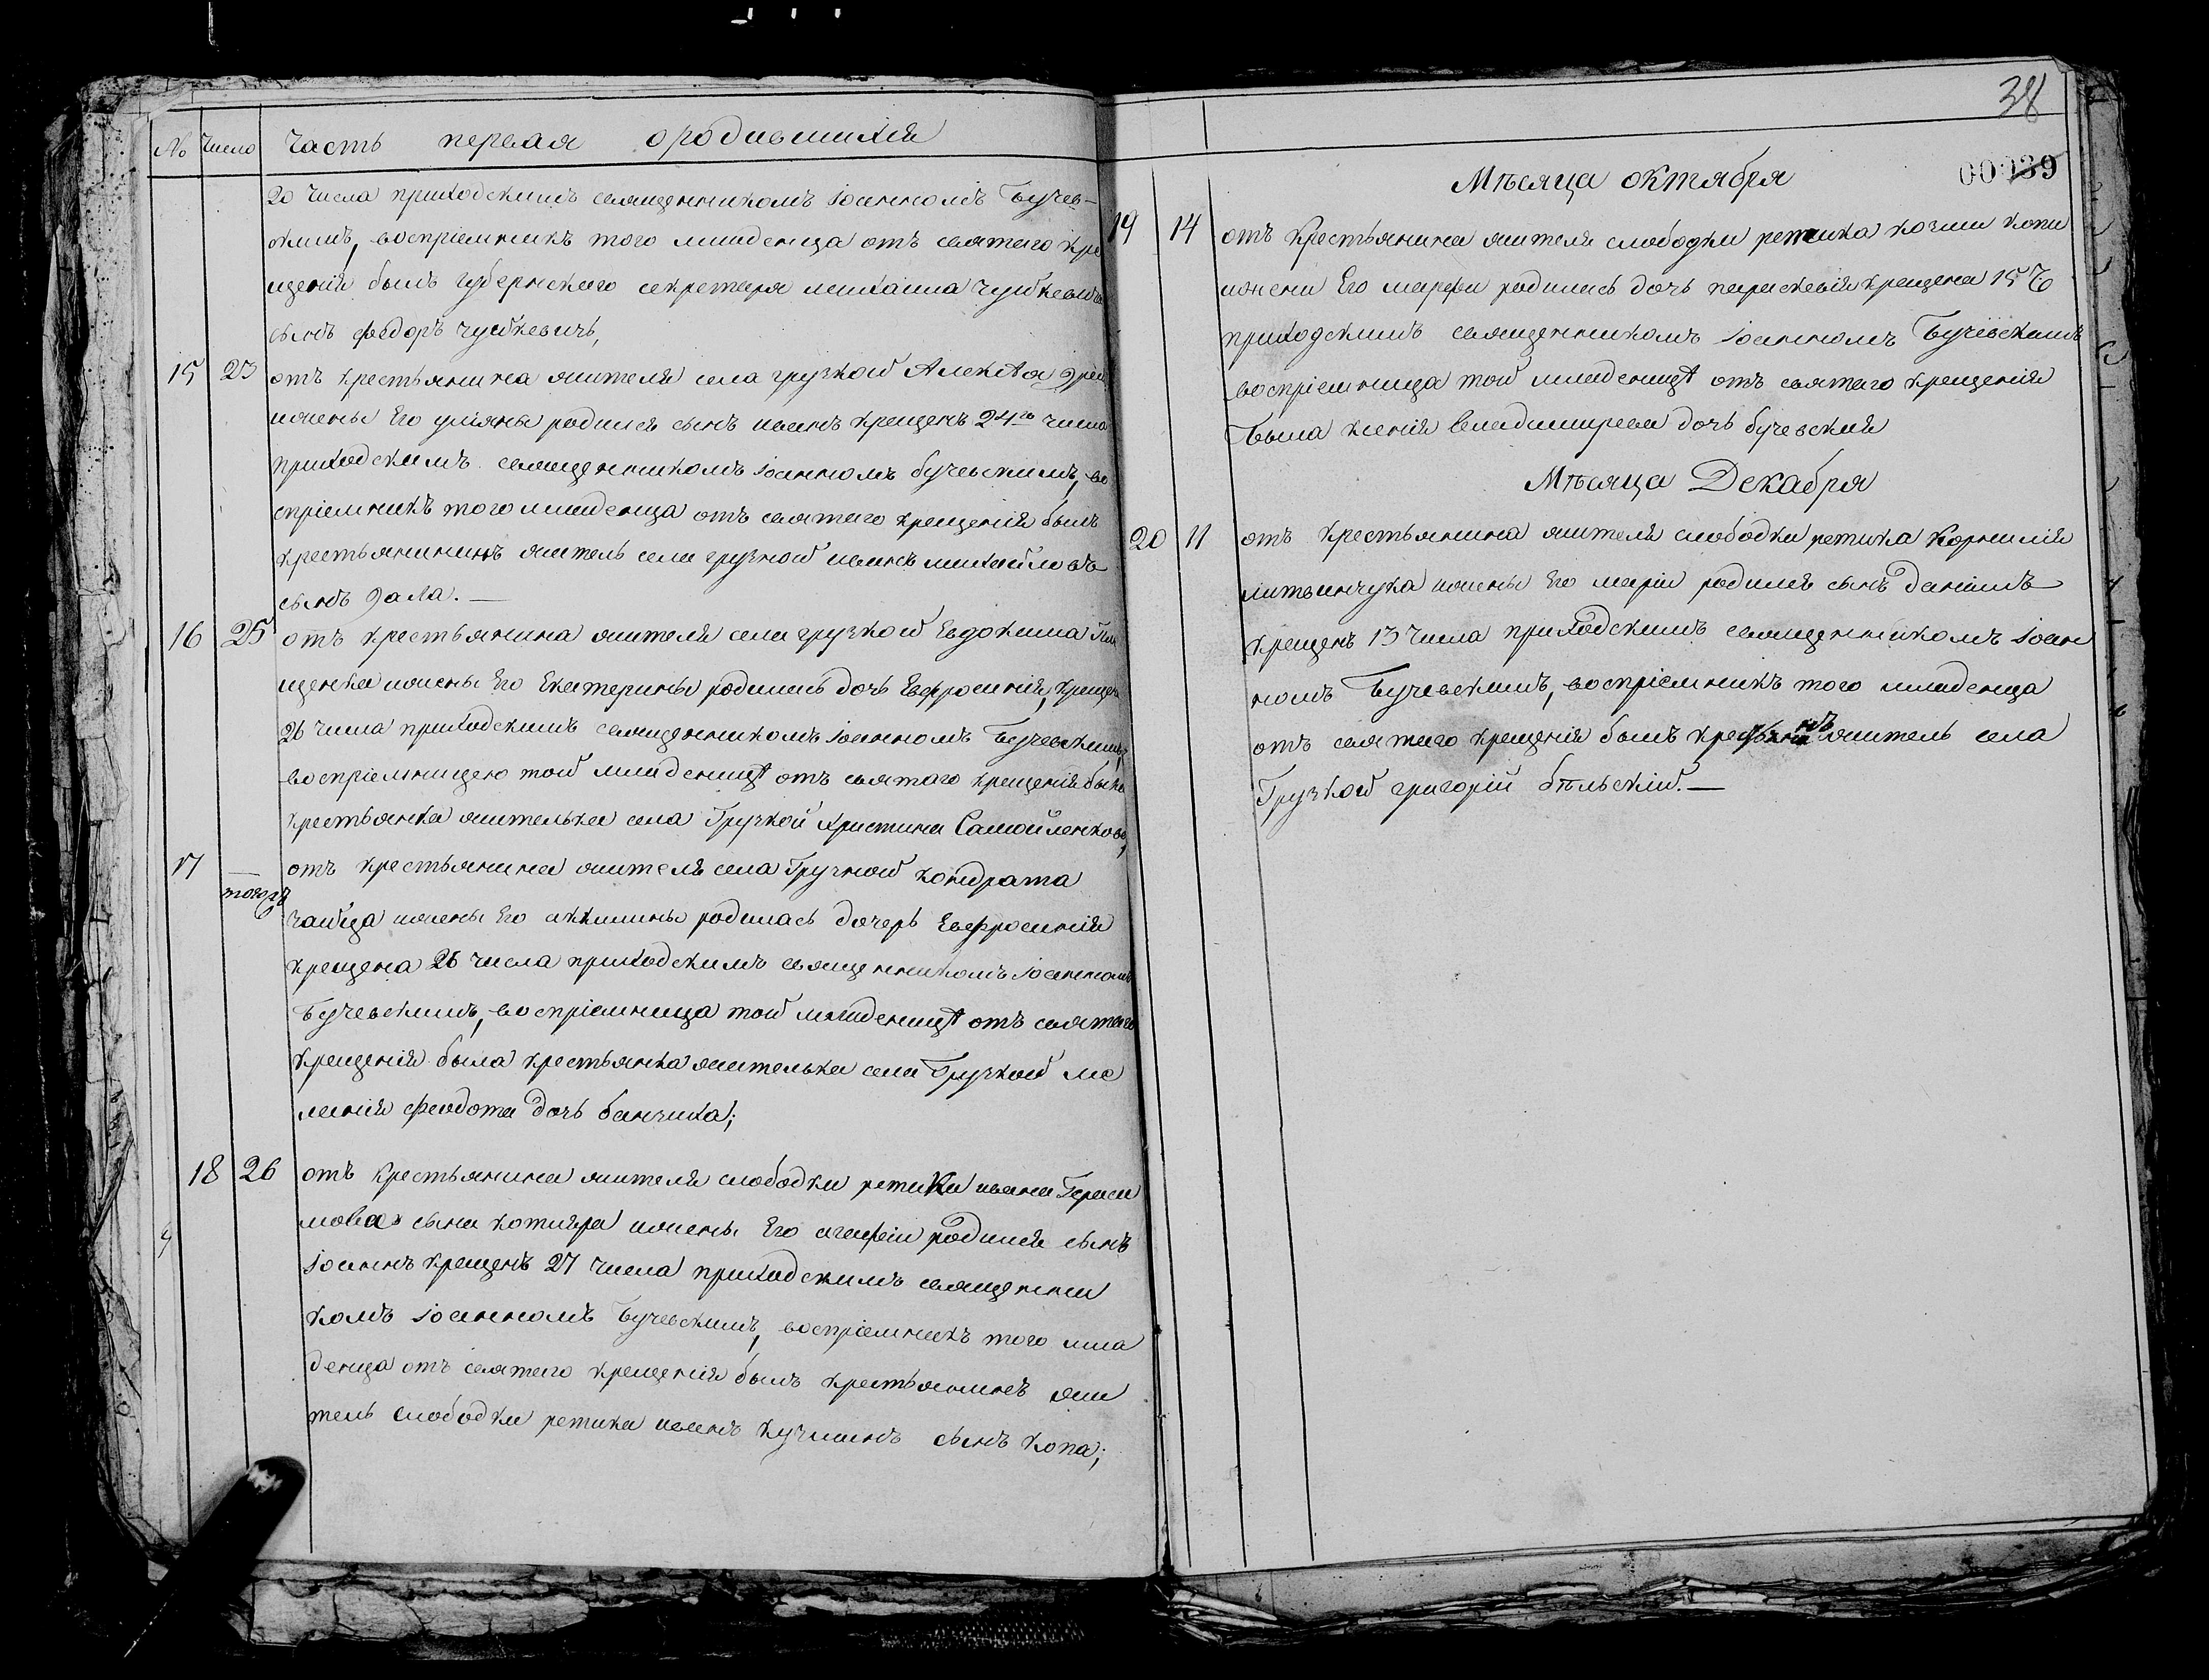 № Число Часть первая о родившихся
20 числа приходскимъ священникомъ Іоанномъ Бучев-
скимъ, воспріемникъ того младенца отъ святаго кре
щенія былъ губернского секретаря михаила чушкевича
сынъ федоръ чушкевичъ,
15 23 отъ крестьянина жителя села грузкой Алексѣя
ижены Его уліяны родился сынъ иванъ крещенъ 24го числа
приходскимъ священникомъ Іоанномъ бучевскимъ, во
спріемникъ того младенца отъ святаго крещенія былъ
крестьянинъ житель села грузкой иванъ михайловъ
сынъ
16 25 отъ крестьянина жителя села грузкой Евдокима
щенка ижены Его Екатерины родилась дочь Евфросинія, крещена
26 числа приходскимъ священникомъ Іоанномъ Бучевскимъ,
воспріемницею той младеницѣ отъ святого крещенія была
крестьянка жителька села Грузкой христина Самойленкова,
17 — отъ крестьянина жителя села Грузкой кондрата
тогожъ
ижены Его акилины родилась дочерь Евфросинія
крещена 26 числа приходскимъ священникомъ Іоанномъ
Бучевскимъ, воспріемница той младеницѣ отъ святаго
крещенія была крестьянка жителька села Грузкой ме
ланія феодота дочь банчиха;
18 26 отъ крестьянина жителя слободки ретика ивана Гераси
мова сына котляра ижены Его агафіи родился сынъ
Іоаннъ крещенъ 27 числа приходскимъ священни
комъ Іоанномъ Бучевскимъ, воспріемникъ того мла
денца отъ святаго крещенія былъ крестьянинъ жи
тель слободки ретика иванъ кузминъ сынъ копа;
38
00039
Мѣсяца октября
19 14 отъ крестьянина жителя слободки ретика козми копи
ижени Его марфи родилась дочь параскевія крещена 15 Ч
приходскимъ священникомъ Іоанномъ Бучевскимъ
воспріемница той младеницѣ отъ святаго крещенія
была ксенія владимирева дочь бучевская
Мѣсяца Декабря
20 11 отъ крестьянина жителя слободки ретика Корнилія
литвинчука ижены Его маріи родился сынъ даніилъ
крещенъ 13 числа приходскимъ священникомъ Іоан
номъ Бучевскимъ, воспріемникъ того младенца
отъ святаго крещенія былъ житель села
Грузкой григорій бѣльскій.—